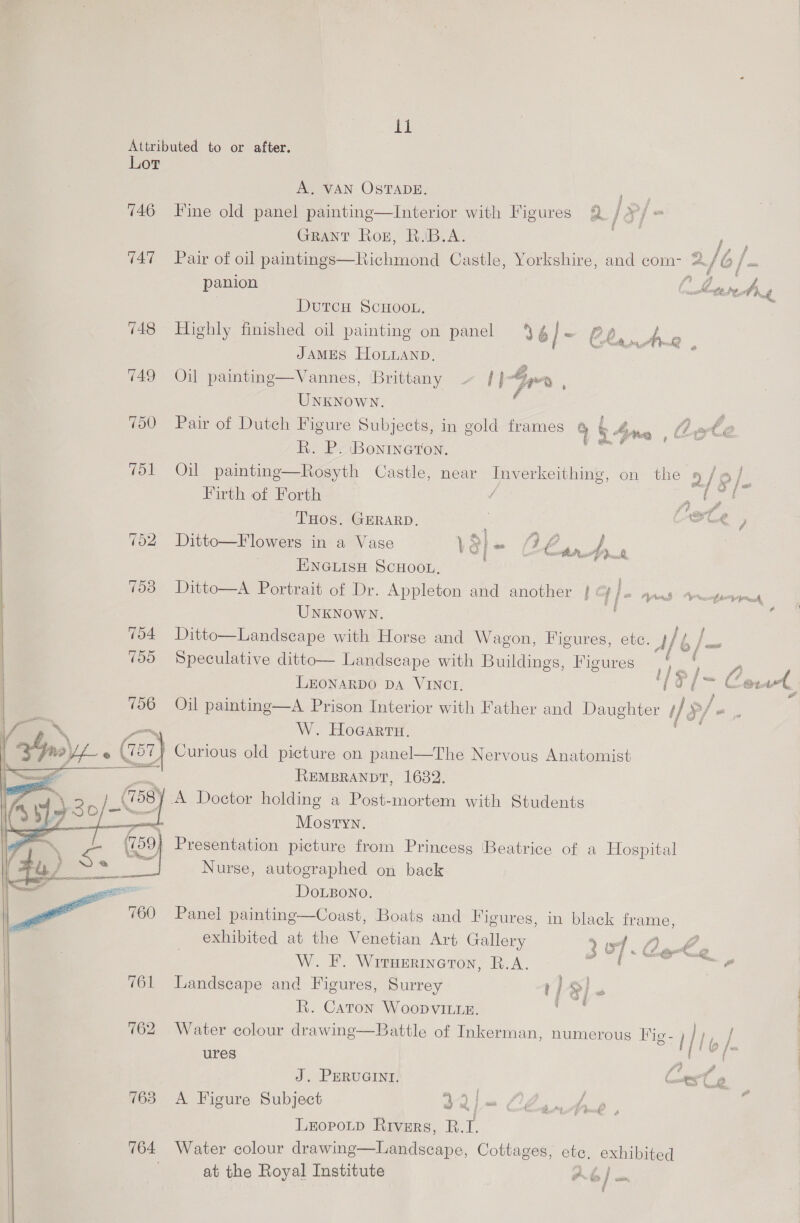 11
Attributed to or after.
LOT
A. VAN OSTADE.
746 Fine old panel painting—Interior with Figures 2/8/-
GRANT ROE, R.B.A.
747 Pair of oil paintings—Richmond Castle, Yorkshire, and com- 2/6/-
panion
DUTCH SCHOOL.
748 Highly finished oil painting on panel 36/-
JAMES HOLLAND.
749 Oil painting—Vannes, Brittany
UNKNOWN.
750 Pair of Dutch Figure Subjects, in gold frames
R. P. BONINGTON.
751 Oil painting—Rosyth Castle, near Inverkeithing, on the 2/8/-
Firth of Forth
THOS. GERARD.
752 Ditto—Flowers in a Vase 18/-
ENGLISH SCHOOL.
753 Ditto—A Portrait of Dr. Appleton and another
UNKNOWN.
754 Ditto—Landscape with Horse and Wagon, Figures, etc. 1/6/-
755 Speculative ditto— Landscape with Buildings, Figures
LEONARDO DA VINCI. 1/8/-
756 Oil painting—A Prison Interior with Father and Daughter 1/8/-
W. HOGARTH.
757 Curious old picture on panel—The Nervous Anatomist
REMBRANDT, 1632.
30/- 758 A Doctor holding a Post-mortem with Students
MOSTYN.
759 Presentation picture from Princess Beatrice of a Hospital
Nurse, autographed on back
DOLBONO.
760 Panel painting—Coast, Boats and Figures, in black frame,
exhibited at the Venetian Art Gallery
W. F. WITHERINGTON, R.A.
761 Landscape and Figures, Surrey 1/8/-
R. CATON WOODVILLE.
762 Water colour drawing—Battle of Inkerman, numerous Fig- 1/16/-
ures
J. PERUGINI.
763 A Figure Subject 32/-
LEOPOLD RIVERS, R.I.
764 Water colour drawing—Landscape, Cottages, etc. exhibited
at the Royal Institute 26/-